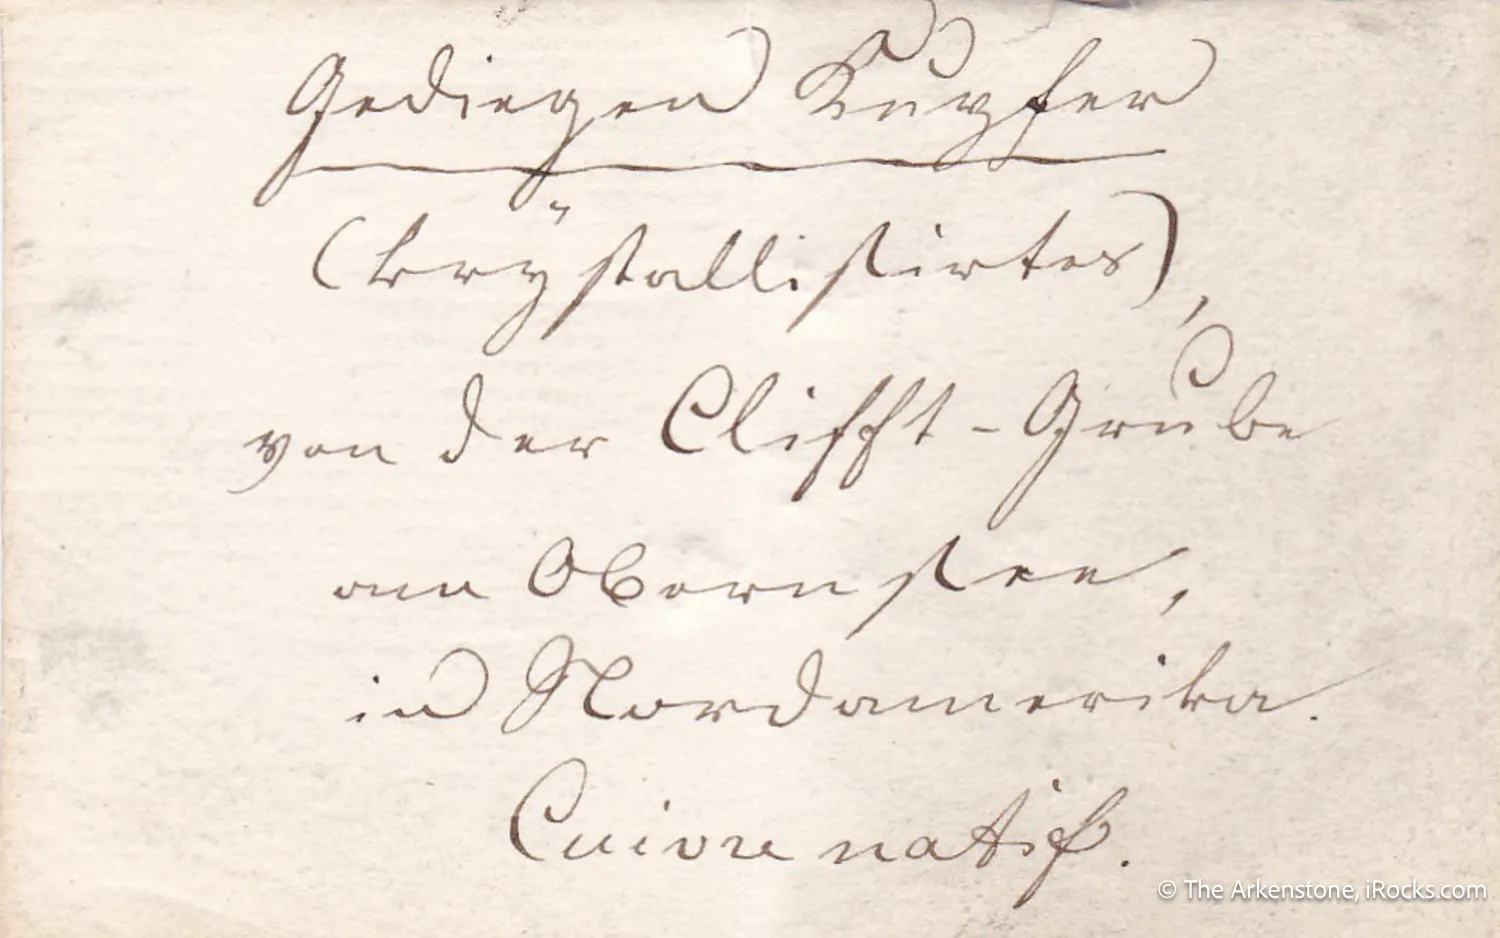 Gediegen Kupfer
(krÿstallisirtes),
von der Clifft-Grube
am Obernsee,
in Nordamerika.
Cuivre natif.
© The Arkenstone, iRocks.com